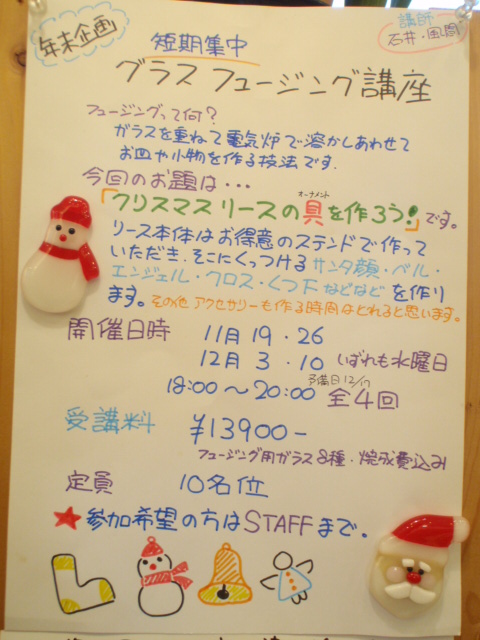 年末企画
講師
石井・風間
短期集中
グラス フュージング講座
フュージングって何?
ガラスを重ねて電気炉で溶かしあわせて
お皿や小物を作る技法です.
今回のお題は・・・
オーナメント
「クリスマスリースの具を作ろう!」です。
リース本体はお得意のステンドで作って
いただき.そこにくっつけるサンタ顔・ベル・
エンジェル・クロス・くつ下などなどを作り
ます。その他アクセサリーも作る時間はとれると思います。
開催日時 11月19・26
12月3・10 いずれも水曜日
予備日12/17
18:00~20:00 全4回
受講料 ¥13900-
フュージング用ガラス8種・焼成費込み
定員 10名位
★参加希望の方はSTAFFまで。